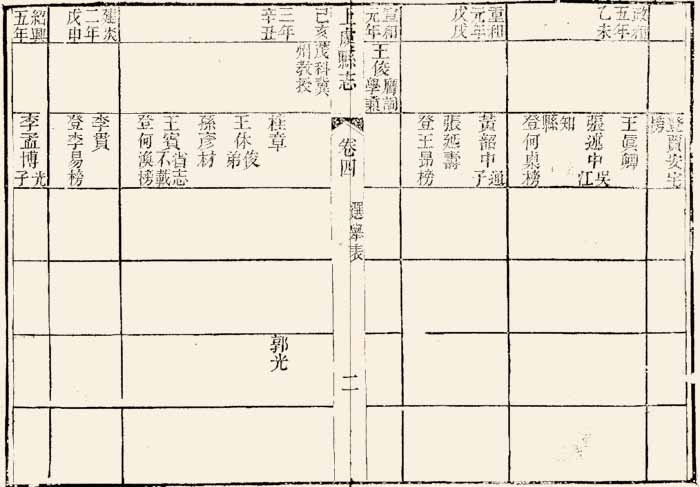 登賈安宅榜
政和五年乙未
王眞卿
張述中吳江
知縣
登何㮚榜
重和元年戊戌
黃韶中通子
張延壽
登王昂榜
宣和元年
王俊膺詞學兼
上虞縣志
卷四
選舉表
二
己亥茂科冀州教授
三年辛丑
桂章
郭光
王休俊弟
孫彥材
王賓省志不載
登何渙榜
建炎二年戊申
李貫
登李易榜
紹興五年
李孟博光子